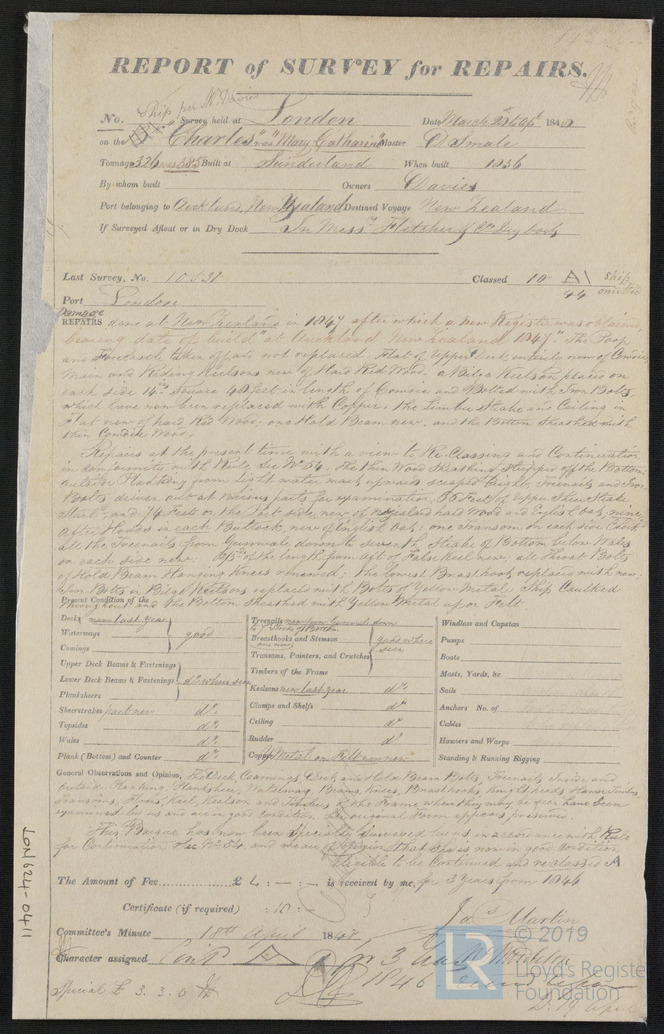 REPORT of SURVEY for REPAIRS.
Ship per Mr Davies
No. Survey held at London Date March 25 & Apl 1848
on the "Charles" was "Mary Catharine" Master D Smale
Tonnage 326 was 385 Built at Sunderland When built 1836
By whom built Owners Davies
Port belonging to Auckland, New Zealand Destined Voyage New Zealand
If Surveyed Afloat or in Dry Dock In Messrs Fletcher & Co Dry Dock
Last Survey, No. 10538 Classed 10 A 44 Ship
Port London
Damage
REPAIRS done at New Zealand in 1847 after which a new Register was obtained,
bearing date of build "at Auckland New Zealand 1847." The Poop
and Forecastle taken off & not replaced. Flat of Upper Deck entirely new of Cowdie
Main and Riding Keelsons new of Hard Red Wood. a Bilge Keelson placed on
each side 14 ins square 48 feet in length of Cowdie and Bolted with Iron Bolts,
which have now been replaced with Copper, the Limber Strake and Ceiling in
flat new of hard Red Wood; one Hold Beam new. and the Bottom Sheathed with
thin Cowdie Wood.
Repairs at the present time with a view to Re-Classing and Continuation
in conformity with Rule Sec No 54. The thin Wood Sheathing stripped off the Bottom
outside Planking from light water mark upwards scraped bright, Treenails and Iron
Bolts driven out at various parts for examination, 56 Feet of Upper Sheer Strake
Starbd and 74 Feet on the Port side, new of N Zealand hard Wood and English Oak, nine
after Hoods in each Buttock, new of English Oak; one Transom on each side
all the Treenails from Gunwale down to seventh Strake of Bottom below Wales
on each side new. of the length from aft of False Keel new; all Throat Bolts
of Hold Beam Hanging Knees renewed; the lowest Breasthook replaced with new.
Iron Bolts in Bilge Keelsons replaced with Bolts of Yellow Metal. Ship Caulked
throughout and the Bottom Sheathed with Yellow Metal upon Felt.
Present Condition of the
Decks new last year
Waterways
Comings
good
Upper Deck Beams & Fastenings
Lower Deck Beams & Fastenings do where seen
Planksheers
Sheerstrakes part new do
Topsides do
Wales do
Plank (Bottom) and Counter do
Treenails new from Gunwale down
to 7 Strake of Bottom
Breasthooks and Stemson
one new
Transoms, Pointers, and Crutches
good where seen
Timbers of the Frame
Keelsons new last year do
Clamps and Shelfs do
Ceiling do
Rudder do
Copper Y Metal on Felt now new
Windlass and Capstan
Pumps
Boats
Masts, Yards, &c.
Sails
Anchors No. of
Cables
Hawsers and Warps
Standing & Running Rigging
General Observations and Opinion, The Deck, Coamings, Deck and Hold Beam Bolts, Treenails Inside and
Outside Planking, Planksheer, Waterway, Beams, Knees, Breasthooks, Knightheads, Hawse Timbers,
Transoms, Floors, Keel, Keelson and Timbers of the Frame where they may be seen have been
examined by us and are in good condition.
This Barque has now been Specially Surveyed by us in accordance with Rule
for Continuation Sec No 54 and we are of Opinion that she is now in good condition
Eligible to be Continued and re-classed A
The Amount of Fee £ 4 : - : - is received by me, for 3 Years from 1846
Certificate (if required) : 10 : -
Jas Martin
Committee's Minute 18th April 1848
Character assigned Cont A for 3 Years
1846
Special £ 3. 3. 0
LON624-0411
© 2019
LR
Lloyd's Register
Foundation